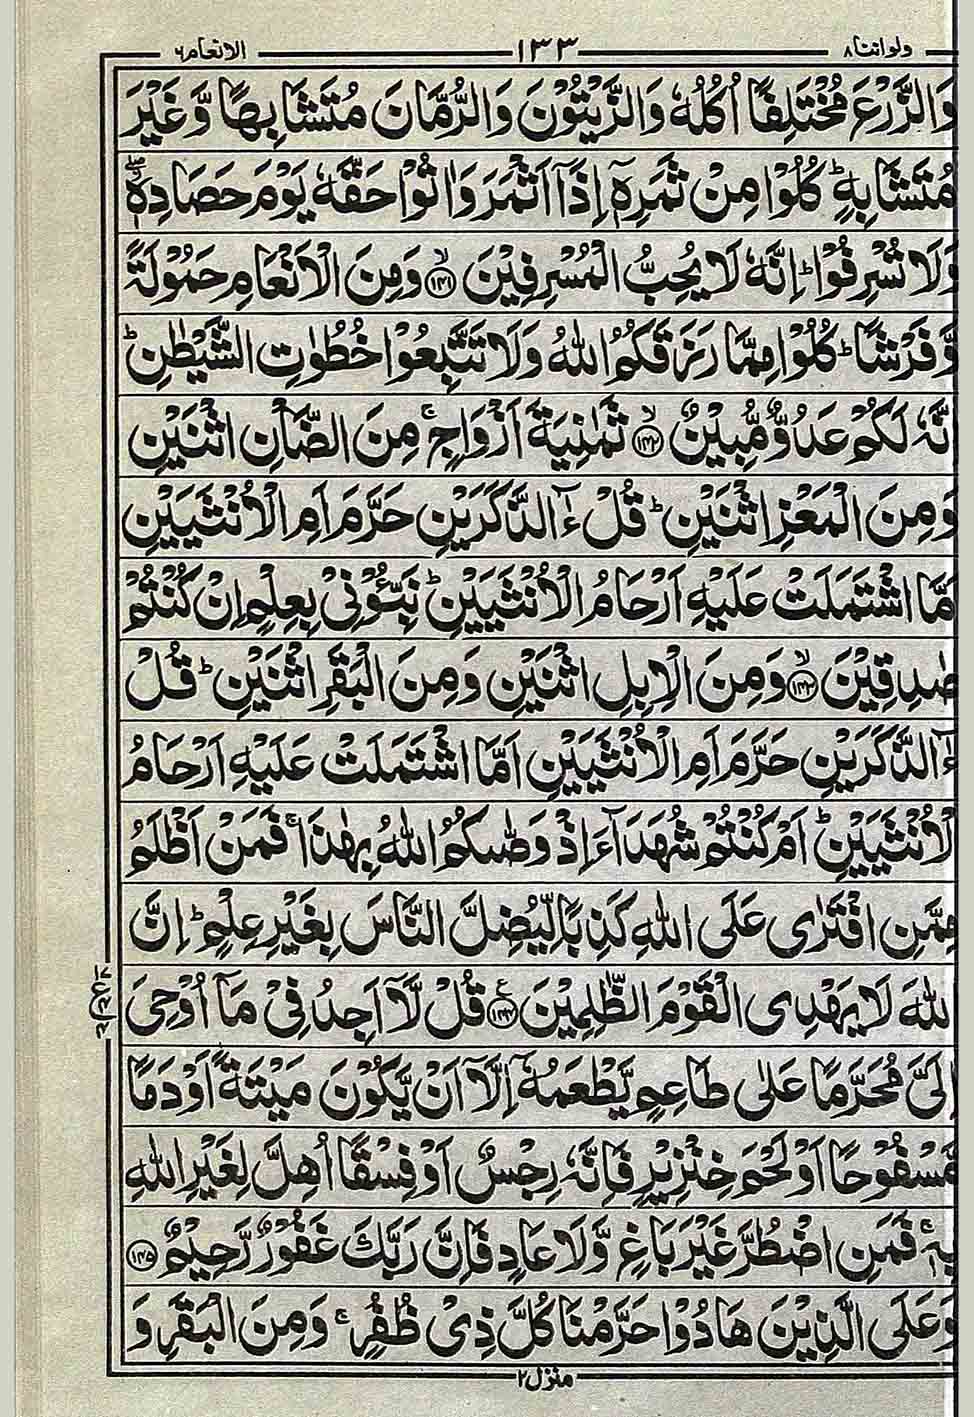 ولواننا ٨ ١٣٣ الانعام ٦
وَالزَّرْعَ مُخْتَلِفًا اُكُلُهٗ وَالزَّيْتُوْنَ وَالرُّمَّانَ مُتَشَابِهًا وَّغَيْرَ
مُتَشَابِهٍ ؕ كُلُوْا مِنْ ثَمَرِهٖۤ اِذَاۤ اَثْمَرَ وَاٰتُوْا حَقَّهٗ يَوْمَ حَصَادِهٖ ۖ
وَلَا تُسْرِفُوْا ؕ اِنَّهٗ لَا يُحِبُّ الْمُسْرِفِيْنَ ۙ﴿۱۴۱﴾ وَمِنَ الْاَنْعَامِ حَمُوْلَةً
وَّفَرْشًا ؕ كُلُوْا مِمَّا رَزَقَكُمُ اللّٰهُ وَلَا تَتَّبِعُوْا خُطُوٰتِ الشَّيْطٰنِ ؕ
نَّهٗ لَكُمْ عَدُوٌّ مُّبِيْنٌ ۙ﴿۱۴۲﴾ ثَمٰنِيَةَ اَزْوَاجٍ ۚ مِنَ الضَّاْنِ اثْنَيْنِ
وَمِنَ الْمَعْزِ اثْنَيْنِ ؕ قُلْ ءٰٓالذَّكَرَيْنِ حَرَّمَ اَمِ الْاُنْثَيَيْنِ
اَمَّا اشْتَمَلَتْ عَلَيْهِ اَرْحَامُ الْاُنْثَيَيْنِ ؕ نَبِّـُٔوْنِيْ بِعِلْمٍ اِنْ كُنْتُمْ
صٰدِقِيْنَ ۙ﴿۱۴۳﴾ وَمِنَ الْاِبِلِ اثْنَيْنِ وَمِنَ الْبَقَرِ اثْنَيْنِ ؕ قُلْ
ءٰٓالذَّكَرَيْنِ حَرَّمَ اَمِ الْاُنْثَيَيْنِ اَمَّا اشْتَمَلَتْ عَلَيْهِ اَرْحَامُ
الْاُنْثَيَيْنِ ؕ اَمْ كُنْتُمْ شُهَدَآءَ اِذْ وَصّٰىكُمُ اللّٰهُ بِهٰذَا ۚ فَمَنْ اَظْلَمُ
مِمَّنِ افْتَرٰى عَلَى اللّٰهِ كَذِبًا لِّيُضِلَّ النَّاسَ بِغَيْرِ عِلْمٍ ؕ اِنَّ
اللّٰهَ لَا يَهْدِى الْقَوْمَ الظّٰلِمِيْنَ ﴿۱۴۴﴾ قُلْ لَّاۤ اَجِدُ فِيْ مَاۤ اُوْحِيَ
اِلَيَّ مُحَرَّمًا عَلٰى طَاعِمٍ يَّطْعَمُهٗۤ اِلَّاۤ اَنْ يَّكُوْنَ مَيْتَةً اَوْ دَمًا
مَّسْفُوْحًا اَوْ لَحْمَ خِنْزِيْرٍ فَاِنَّهٗ رِجْسٌ اَوْ فِسْقًا اُهِلَّ لِغَيْرِ اللّٰهِ
بِهٖ ۚ فَمَنِ اضْطُرَّ غَيْرَ بَاغٍ وَّلَا عَادٍ فَاِنَّ رَبَّكَ غَفُوْرٌ رَّحِيْمٌ ﴿۱۴۵﴾
وَعَلَى الَّذِيْنَ هَادُوْا حَرَّمْنَا كُلَّ ذِيْ ظُفُرٍ ۚ وَمِنَ الْبَقَرِ وَ
منزل ٢